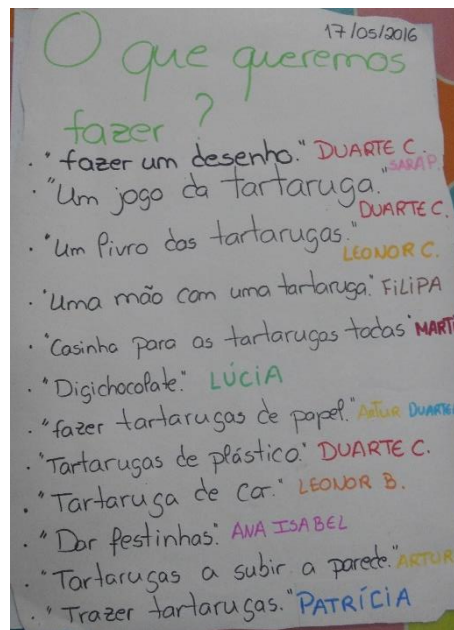 17/05/2016
O que queremos
fazer?
· "fazer um desenho." DUARTE C.
SARA P.
· "Um jogo da tartaruga."
DUARTE C.
· "Um livro das tartarugas."
LEONOR C.
· "Uma mão com uma tartaruga." FILIPA
· "Casinha para as tartarugas todas" MARTI
· "Digichocolate." LÚCIA
· "fazer tartarugas de papel." ARTUR DUARTE
· "Tartarugas de plástico." DUARTE C.
· "Tartaruga de cor." LEONOR B.
· "Dar festinhas." ANA ISABEL
· "Tartarugas a subir a parede." ARTUR
· "Trazer tartarugas." PATRÍCIA